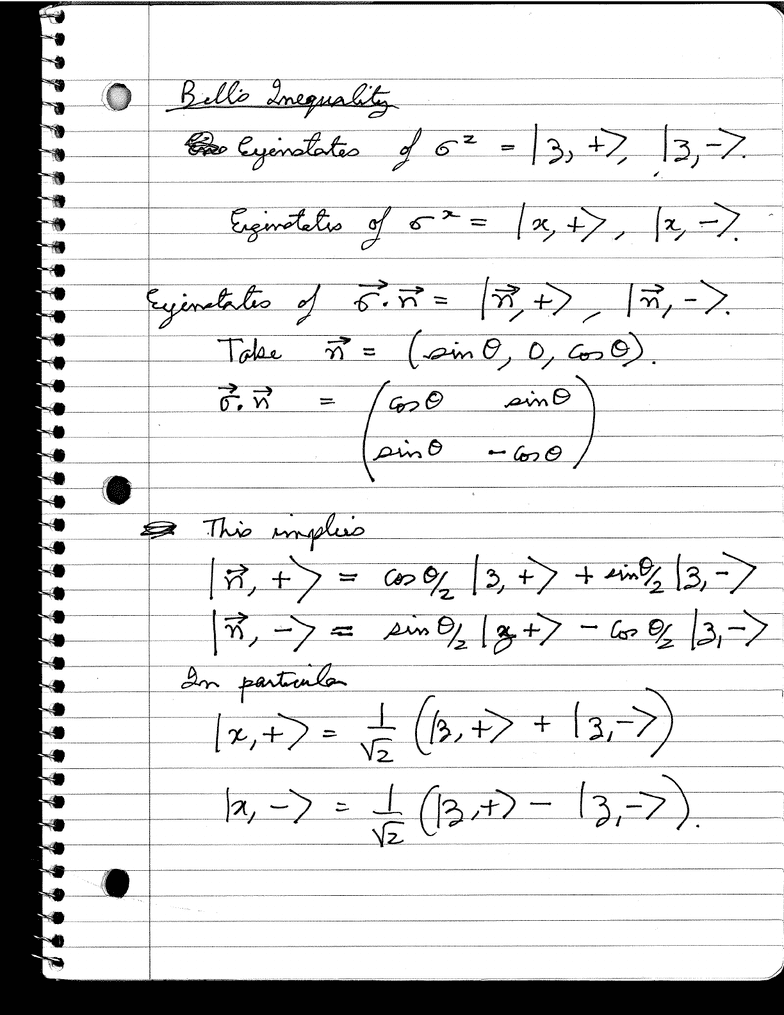 Bell's Inequality
Eigenstates of σ^z = |z, +>, |z, ->.
Eigenstates of σ^x = |x, +>, |x, ->.
Eigenstates of σ⃗·n⃗ = |n⃗, +>, |n⃗, ->.
Take n⃗ = (sin θ, 0, cos θ).
σ⃗·n⃗ = ( cos θ sin θ
sin θ - cos θ )
This implies
|n⃗, +> = cos θ/2 |z, +> + sin θ/2 |z, ->
|n⃗, -> = sin θ/2 |z +> - cos θ/2 |z, ->
In particular
|x, +> = 1/√2 (|z, +> + |z, ->)
|x, -> = 1/√2 (|z, +> - |z, ->).